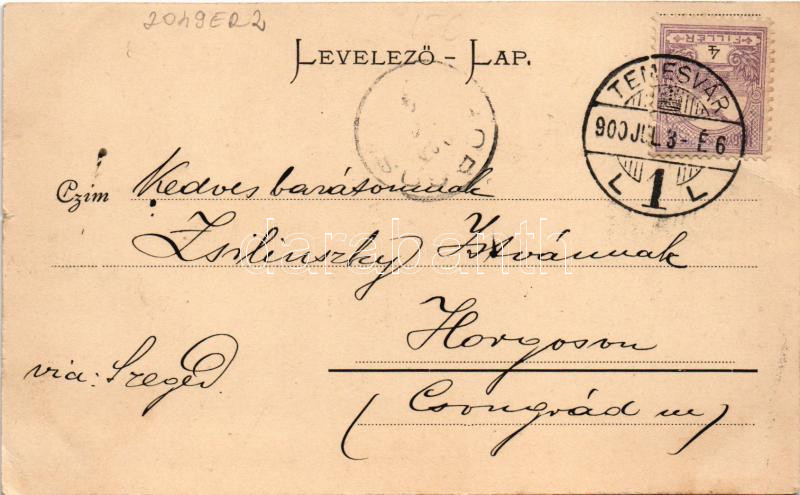 2049ER2
156
LEVELEZŐ - LAP.
4
FILLÉR
TEMESVÁR
900 JUL 3 - É 6
L 1 L
HORGOS
Czim Kedves barátomnak
Zsilinszky Istvánnak
darabanth
Horgoson
via: Szeged.
(Csongrád m)